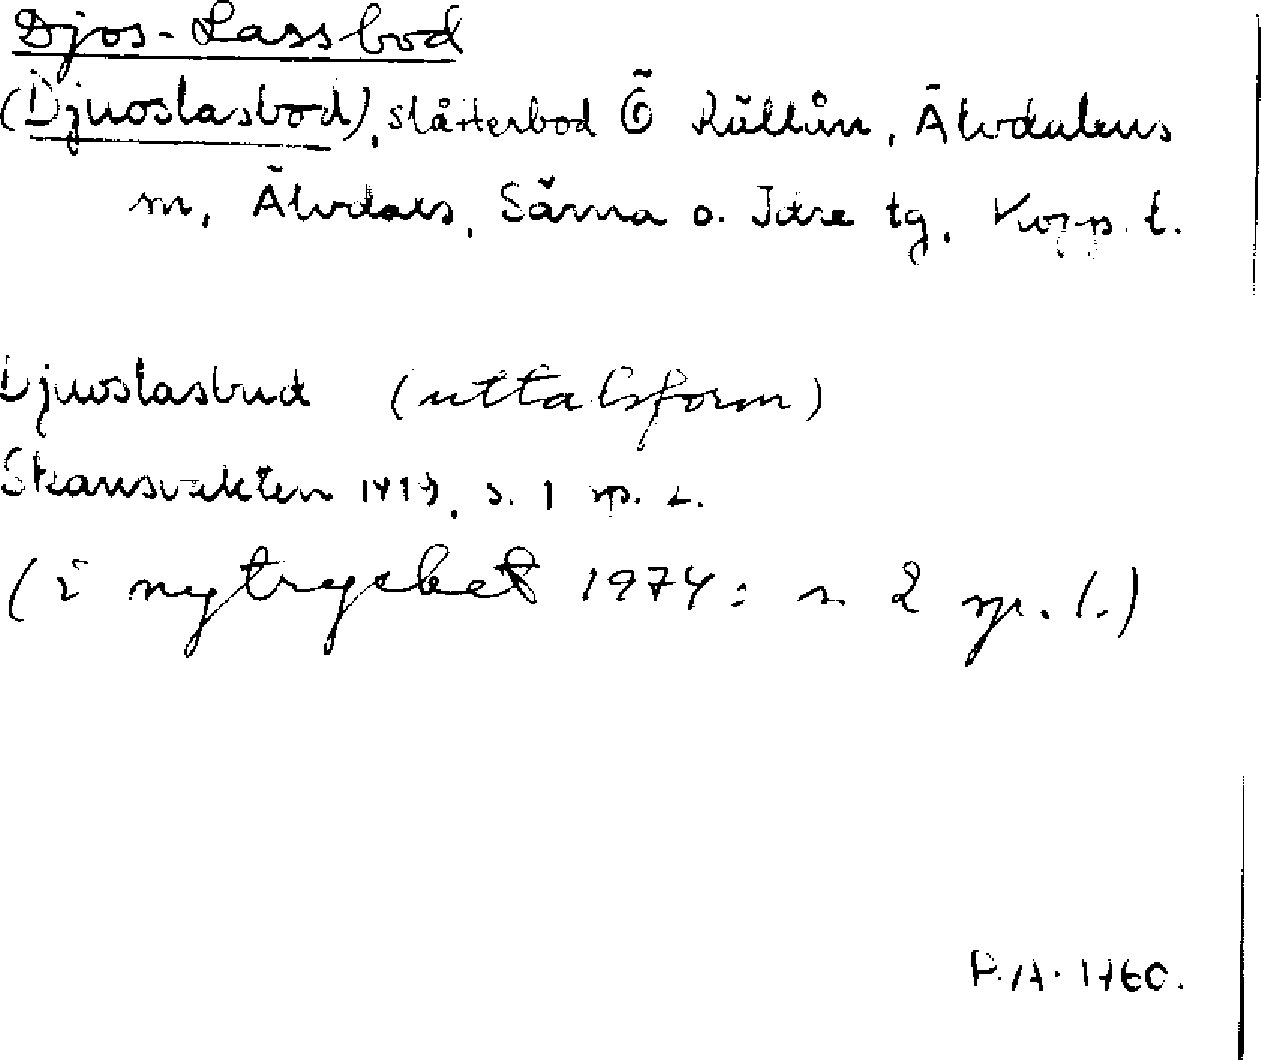 Djos-Lassbod
(Djuoslasbod), slåtterbod Ö Källån, Älvdalens
m, Älvdals, Särna o. Idre tg, Kopp. l.
Djuoslasbud (uttalsform)
Skansvakten 1919, s. 1 sp. 2.
(i nytrycket 1974: s 2 sp. 1.)
R.A. 1960.